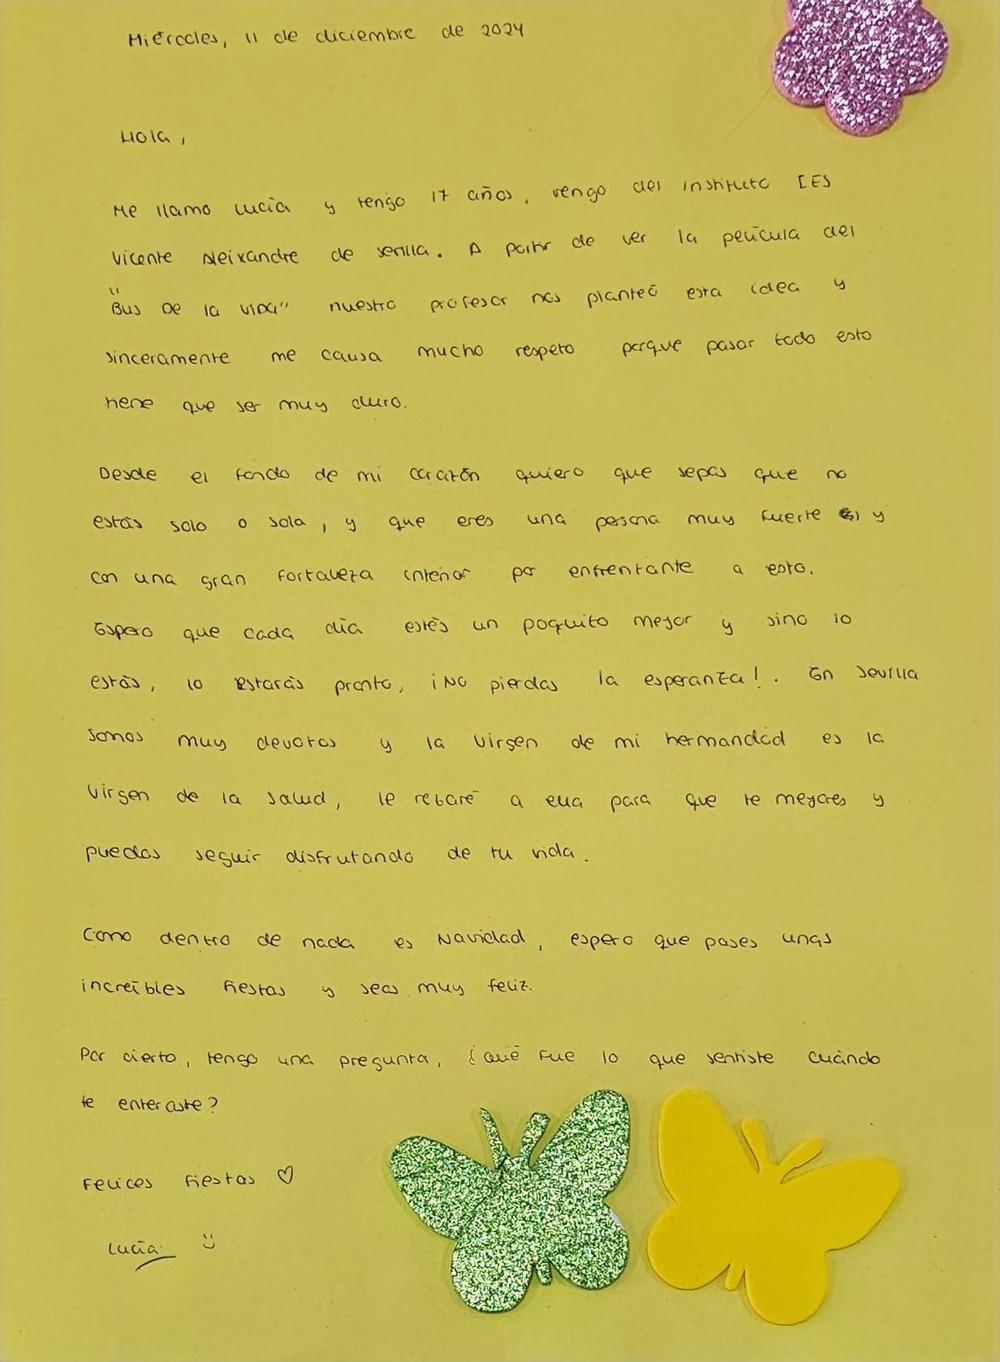 Miércoles, 11 de diciembre de 2024
Hola,
Me llamo Lucía y tengo 17 años, vengo del instituto IES
Vicente Aleixandre de Sevilla. A partir de ver la película del
"Bus De la vida" nuestro profesor nos planteó esta idea y
sinceramente me causa mucho respeto porque pasar todo esto
tiene que ser muy duro.
Desde el fondo de mi corazón quiero que sepas que no
estás solo o sola, y que eres una persona muy fuerte y
con una gran fortaleza interior por enfrentante a esto.
Espero que cada día estés un poquito mejor y sino lo
estás, lo estarás pronto, ¡No pierdas la esperanza!. En Sevilla
somos muy devotos y la Virgen de mi hermandad es la
Virgen de la Salud, le rezaré a ella para que te mejores y
puedas seguir disfrutando de tu vida.
Como dentro de nada es Navidad, espero que pases unas
increíbles fiestas y seas muy feliz.
Por cierto, tengo una pregunta, ¿Qué fue lo que sentiste cuándo
te enteraste?
Felices fiestas ♡
Lucía :)